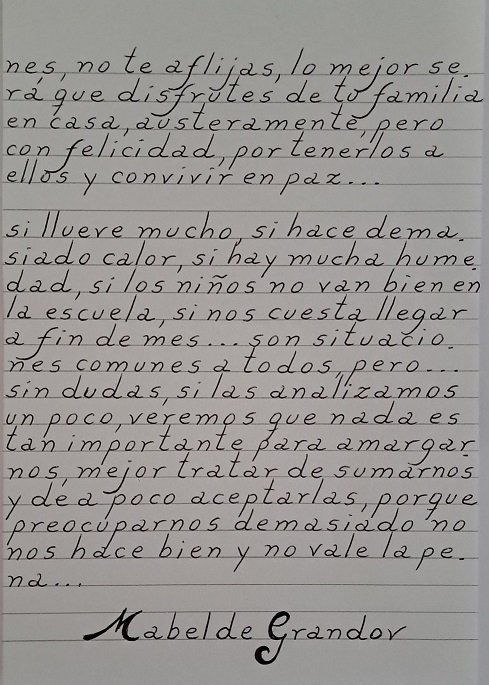 nes, no te aflijas, lo mejor se.
rá que disfrutes de tu familia
en casa, austeramente, pero
con felicidad, por tenerlos a
ellos y convivir en paz...
si llueve mucho, si hace dema.
siado calor, si hay mucha hume.
dad, si los niños no van bien en
la escuela, si nos cuesta llegar
a fin de mes... son situacio.
nes comunes a todos, pero...
sin dudas, si las analizamos
un poco, veremos que nada es
tan importante para amargar
nos, mejor tratar de sumarnos
y de a poco aceptarlas, porque
preocuparnos demasiado no
nos hace bien y no vale la pe.
na...
Mabel de Grandov